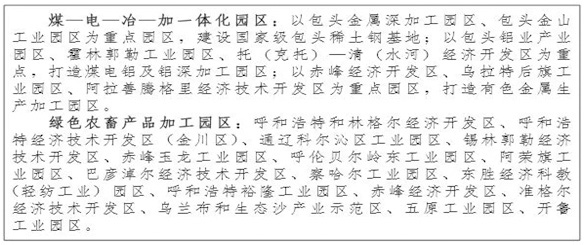 煤—电—冶—加一体化园区：以包头金属深加工园区、包头金山
工业园区为重点园区，建设国家级包头稀土钢基地；以包头铝业产业
园区、霍林郭勒工业园区、托（克托）—清（水河）经济开发区为重
点，打造煤电铝及铝深加工园区；以赤峰经济开发区、乌拉特后旗工
业园区、阿拉善腾格里经济技术开发区为重点园区，打造有色金属生
产加工园区。
绿色农畜产品加工园区：呼和浩特和林格尔经济开发区、呼和浩
特经济技术开发区（金川区）、通辽科尔沁区工业园区、锡林郭勒经济
技术开发区、赤峰玉龙工业园区、呼伦贝尔岭东工业园区、阿荣旗工
业园区、巴彦淖尔经济技术开发区、察哈尔工业园区、东胜经济科教
(轻纺工业）园区、呼和浩特裕隆工业园区、赤峰经济开发区、准格尔
经济技术开发区、乌兰布和生态沙产业示范区、五原工业园区、开鲁
工业园区。